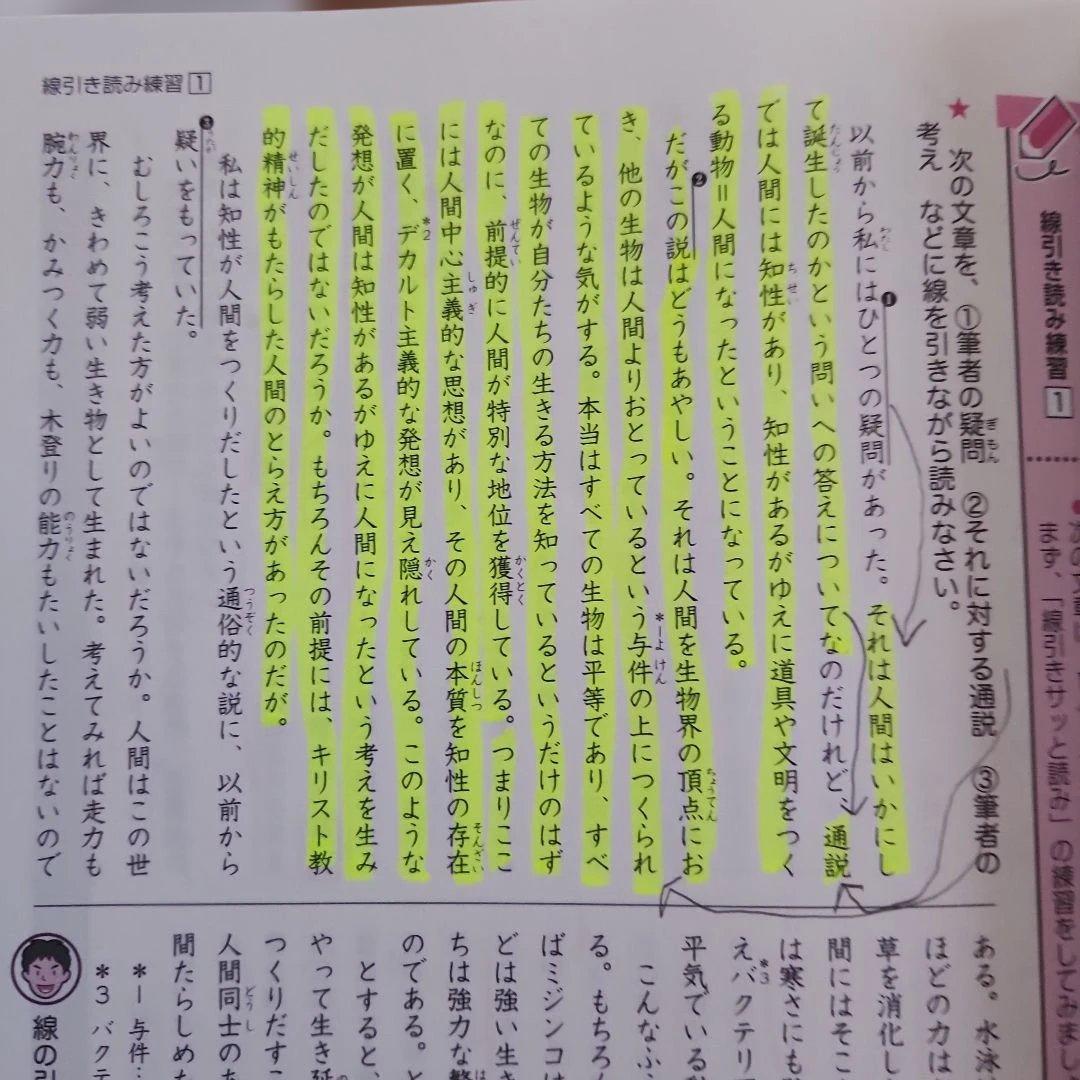 線引き読み練習1
線引き読み練習1
次の文章を、①筆者の疑問 ②それに対する通説 ③筆者の
考え などに線を引きながら読みなさい。
以前から私にはひとつの疑問があった。それは人間はいかにし
て誕生したのかという問いへの答えについてなのだけれど、通説
では人間には知性があり、知性があるがゆえに道具や文明をつく
る動物＝人間になったということになっている。
だがこの説はどうもあやしい。それは人間を生物界の頂点にお
き、他の生物は人間よりおとっているという与件の上につくられ
ているような気がする。本当はすべての生物は平等であり、すべ
ての生物が自分たちの生きる方法を知っているというだけのはず
なのに、前提的に人間が特別な地位を獲得している。つまりここ
には人間中心主義的な思想があり、その人間の本質を知性の存在
に置く、デカルト主義的な発想が見え隠れしている。このような
発想が人間は知性があるがゆえに人間になったという考えを生み
だしたのではないだろうか。もちろんその前提には、キリスト教
的精神がもたらした人間のとらえ方があったのだが。
私は知性が人間をつくりだしたという通俗的な説に、以前から
疑いをもっていた。
むしろこう考えた方がよいのではないだろうか。人間はこの世
界に、きわめて弱い生き物として生まれた。考えてみれば走力も
腕力も、かみつく力も、木登りの能力もたいしたことはないので
ある。水泳
ほどの力は
草を消化し
間にはそこ
は寒さにも
えバクテリ
平気でいる
こんなふ
る。もちろ
ばミジンコは
どは強い生き
ちは強力な繁
のである。と
とすると、
やって生き延
つくりだすこ
人間同士のあ
間たらしめた
*1 与件…
*3 バクテ
線の引
まず、「線引きサッと読み」の練習をしてみまし